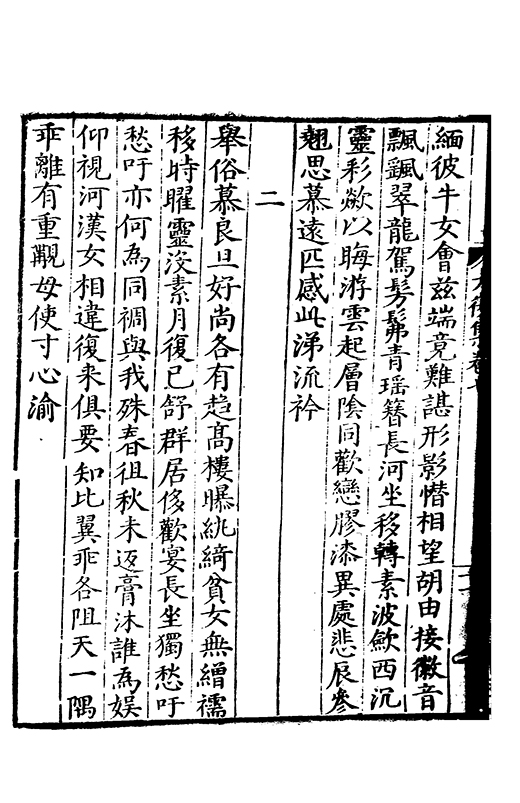 緬彼牛女會兹端竟難諶形影憯相望胡由接徽音
飄飄翠龍駕髣髴青瑶簪長河坐移轉素波歛西沉
靈彩歘以晦游雲起層陰同歡戀膠漆異處悲辰參
翹思慕遠匹感此涕流衿
二
舉俗慕良旦好尚各有趋高樓曝紈綺貧女無繒襦
移時曜靈没素月復已舒群居侈歡宴長坐獨愁吁
愁吁亦何為同裯與我殊春徂秋未返膏沐誰為娱
仰視河漢女相違復来俱要知比翼乖各阻天一隅
乖離有重覯毋使寸心渝